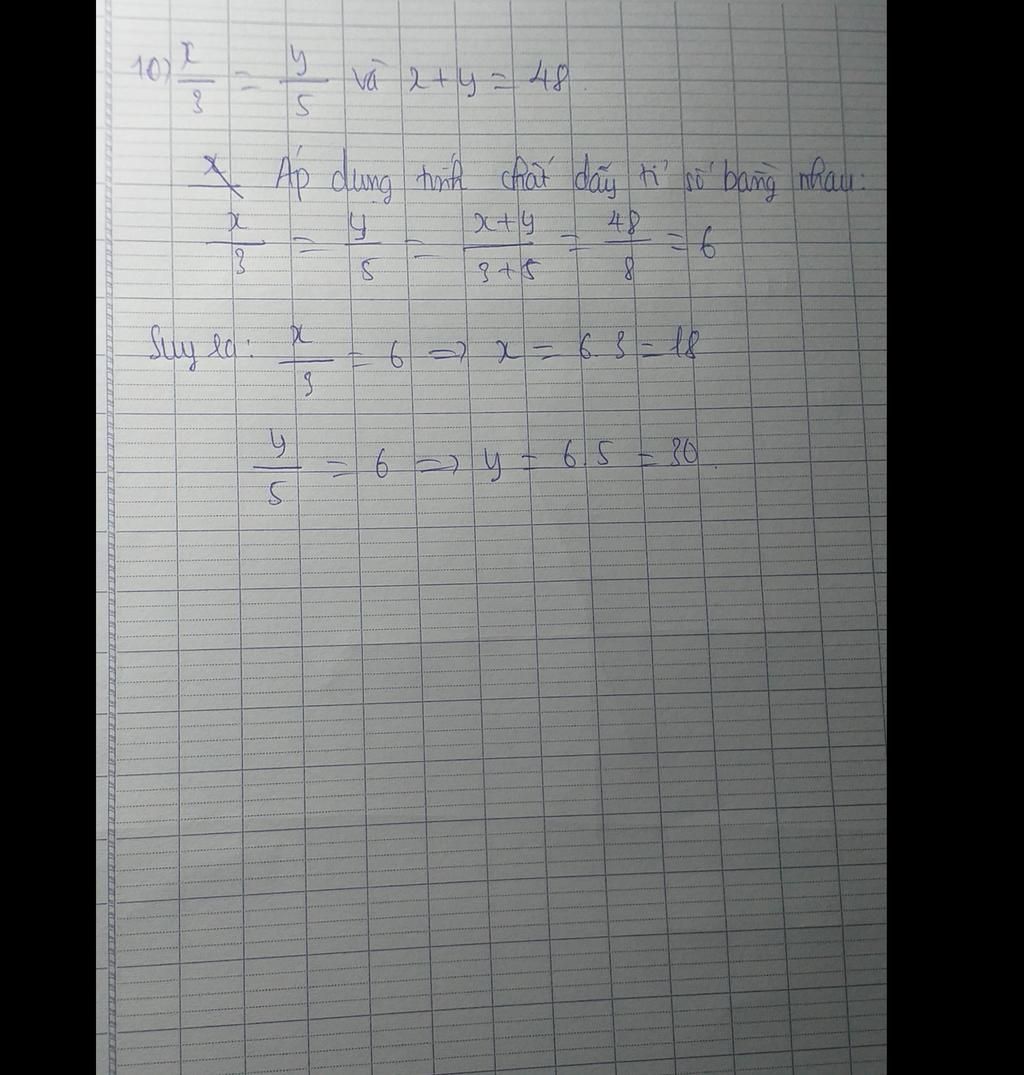 10) x/3 = y/5 và x + y = 48.
Áp dụng tính chất dãy tỉ số bằng nhau:
x/3 = y/5 = x+y/3+5 = 48/8 = 6
Suy ra: x/3 = 6 => x = 6.3 = 18
y/5 = 6 => y = 6.5 = 30.